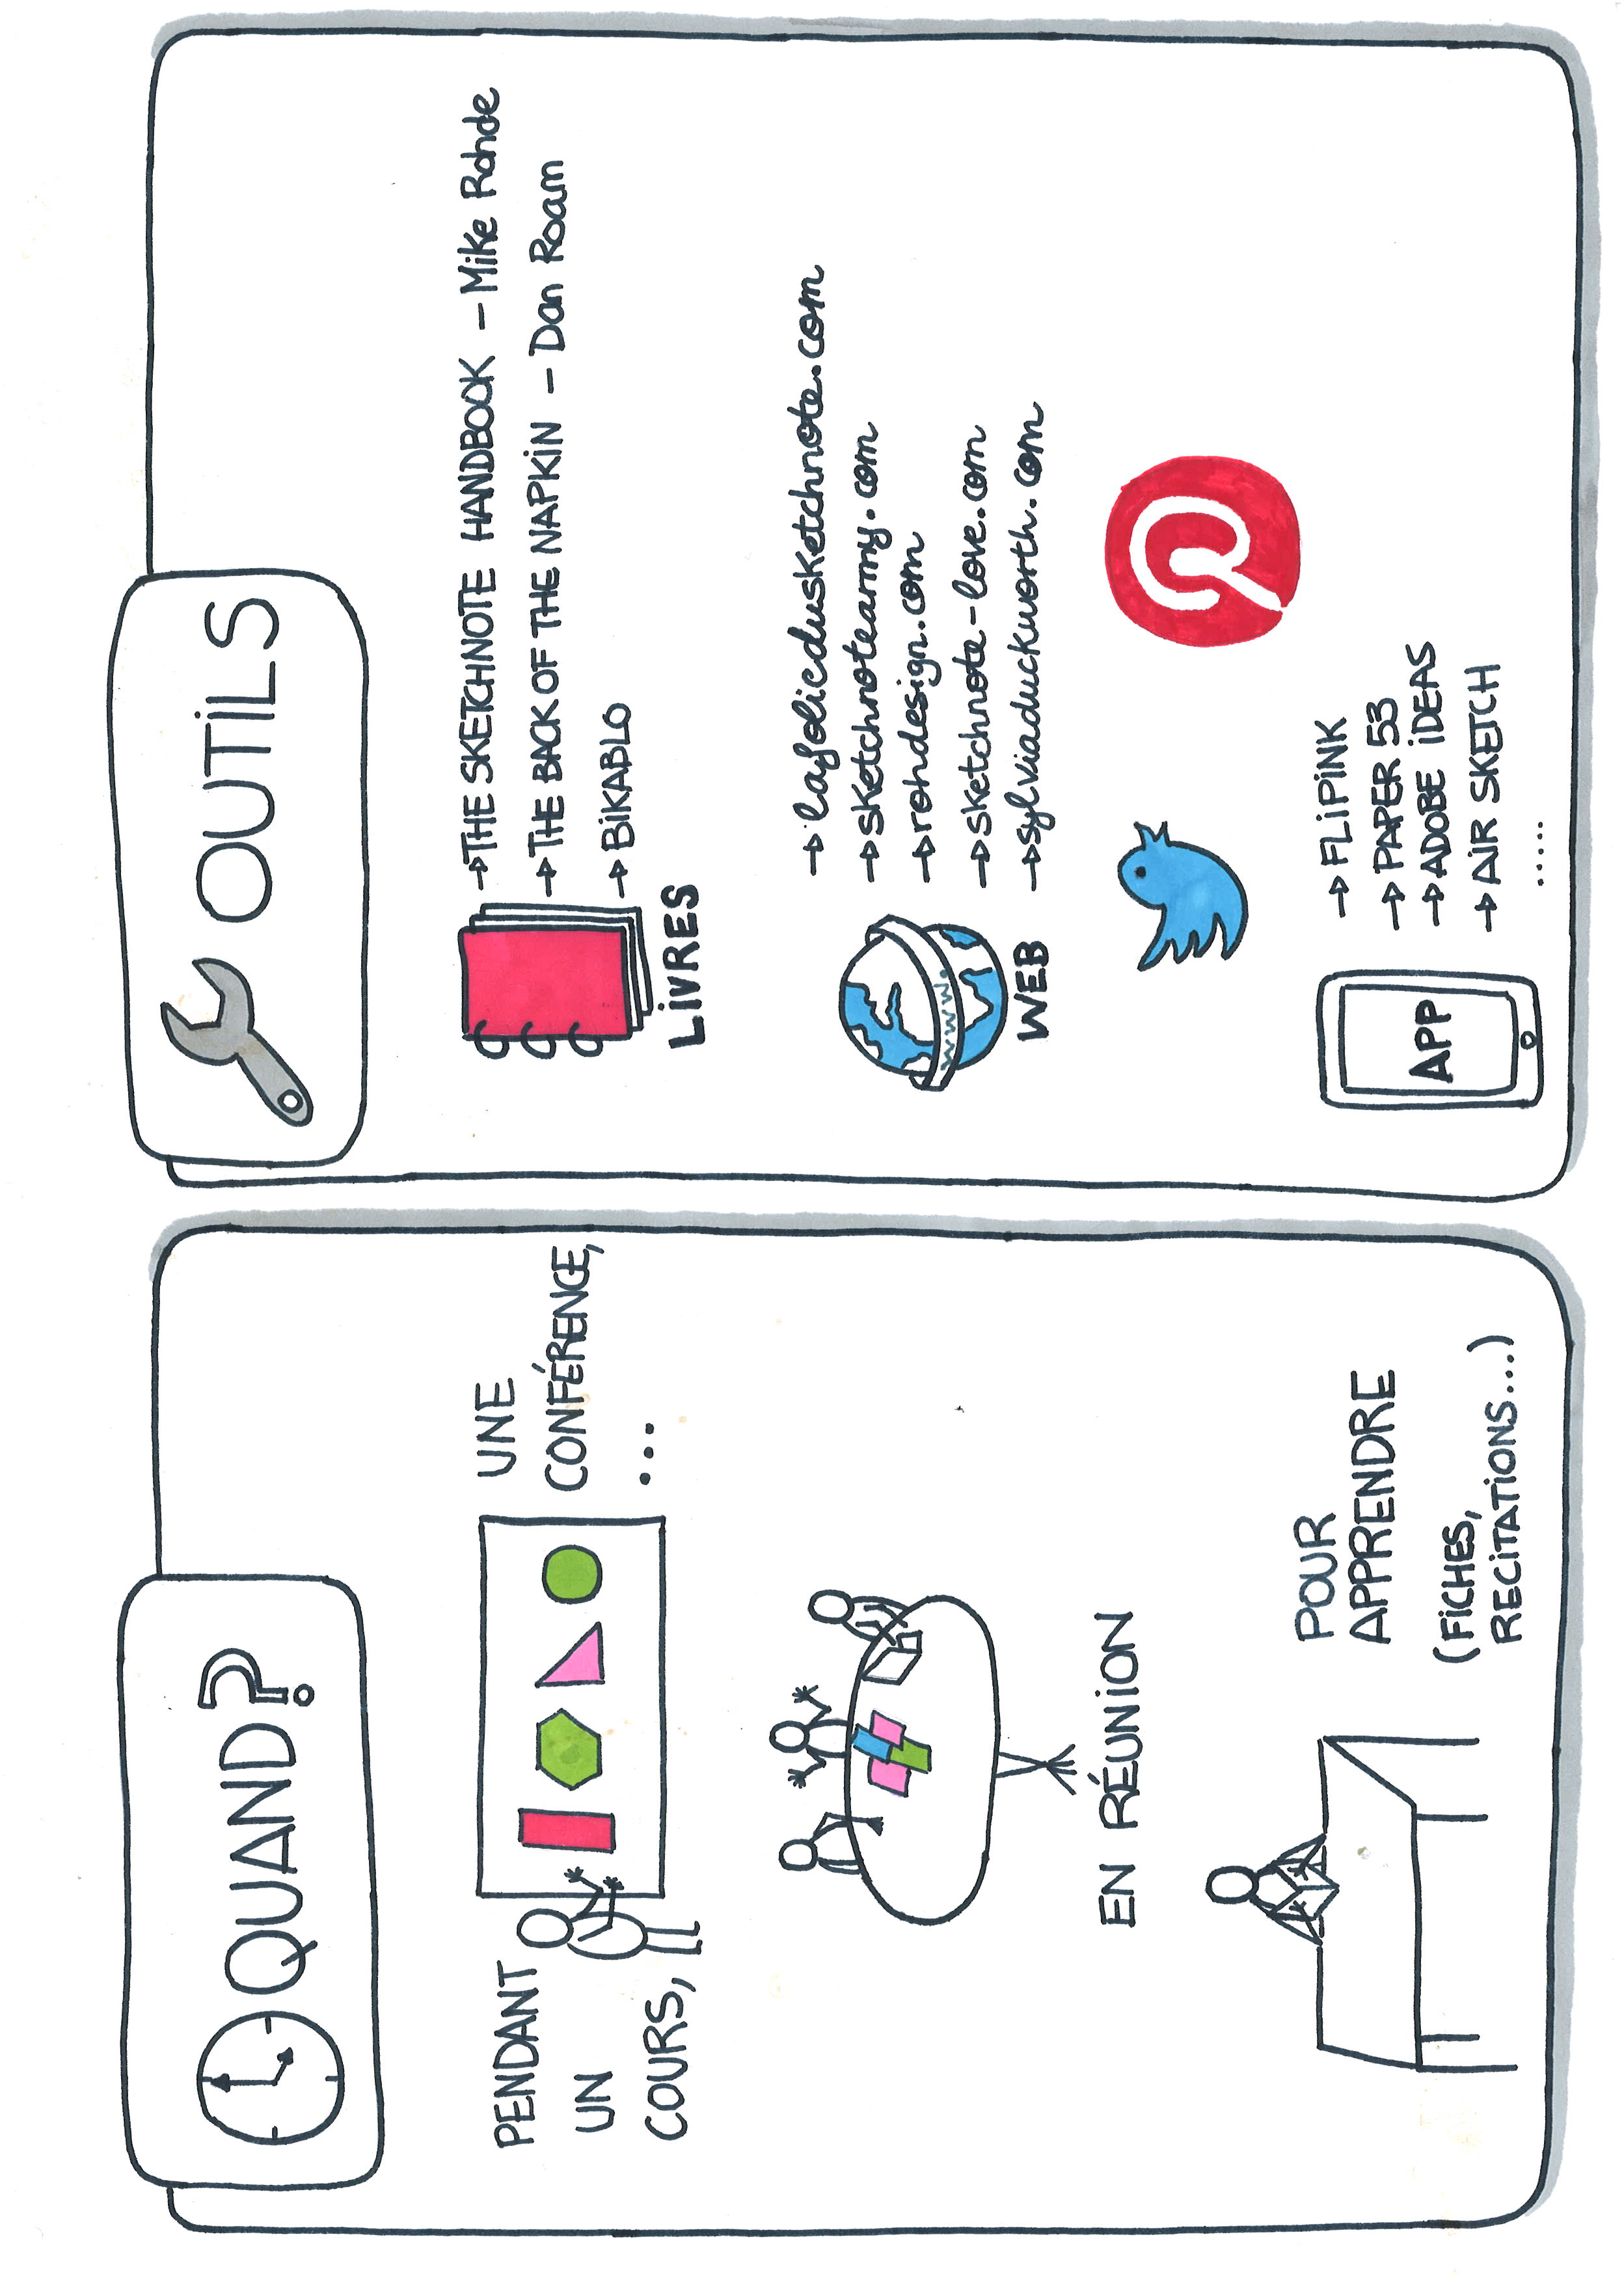 QUAND?
PENDANT
UN
COURS,
UNE
CONFÉRENCE,
...
EN RÉUNION
POUR
APPRENDRE
(FICHES,
RECITATIONS...)
OUTILS
→THE SKETCHNOTE HANDBOOK - Mike Rohde
→THE BACK OF THE NAPKIN - Dan Roam
→BIKABLO
LIVRES
→lafoliedusketchnote.com
→sketchnotearmy.com
→rohdesign.com
→sketchnote-love.com
→sylviaduckworth.com
www.
WEB
→FLIPINK
→PAPER 53
→ADOBE IDEAS
→AIR SKETCH
.....
APP